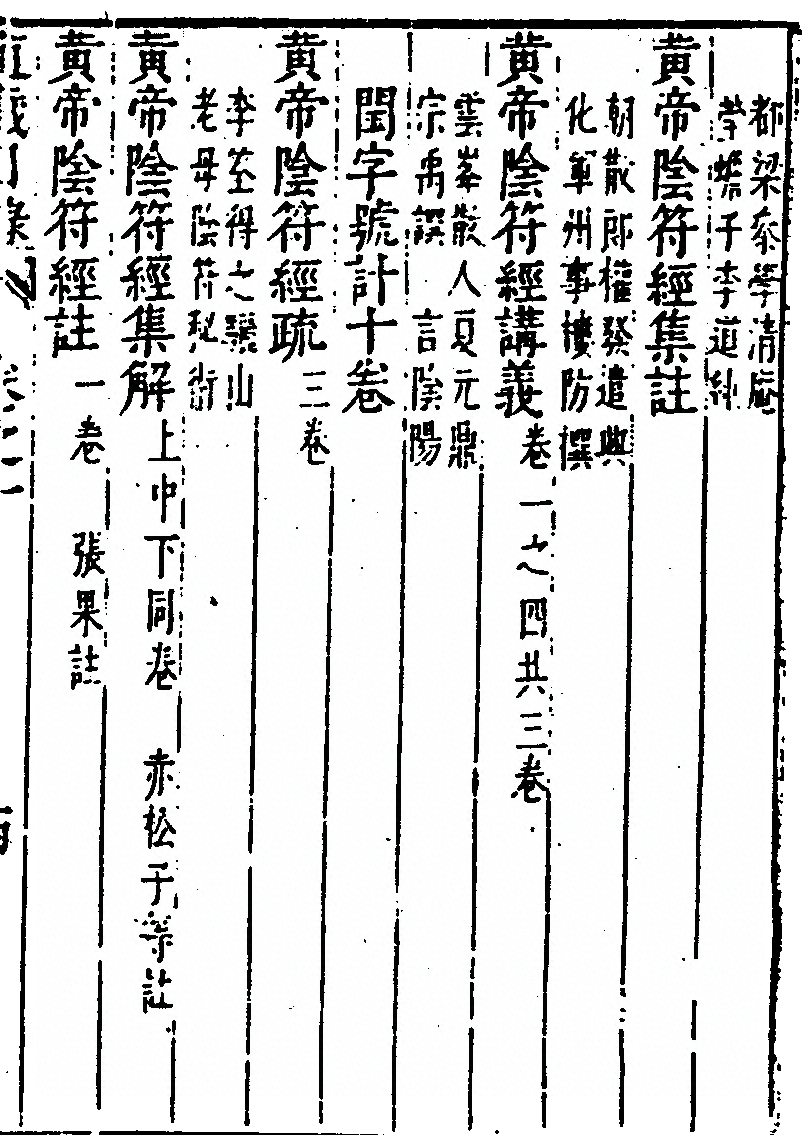 都梁參學清庵
瑩蟾子李道純
黄帝陰符經集註
朝散郎權發遣興
化軍州事樓防撰
黄帝陰符經講義 卷一之四共三卷
雲峯散人夏元鼎
宗禹譔 言陰陽
閏字號計十卷
黄帝陰符經疏 三卷
李筌得之驪山
老母陰符秘術
黄帝陰符經集解 上中下同卷 赤松子等註
黄帝陰符經註 一卷 張果註